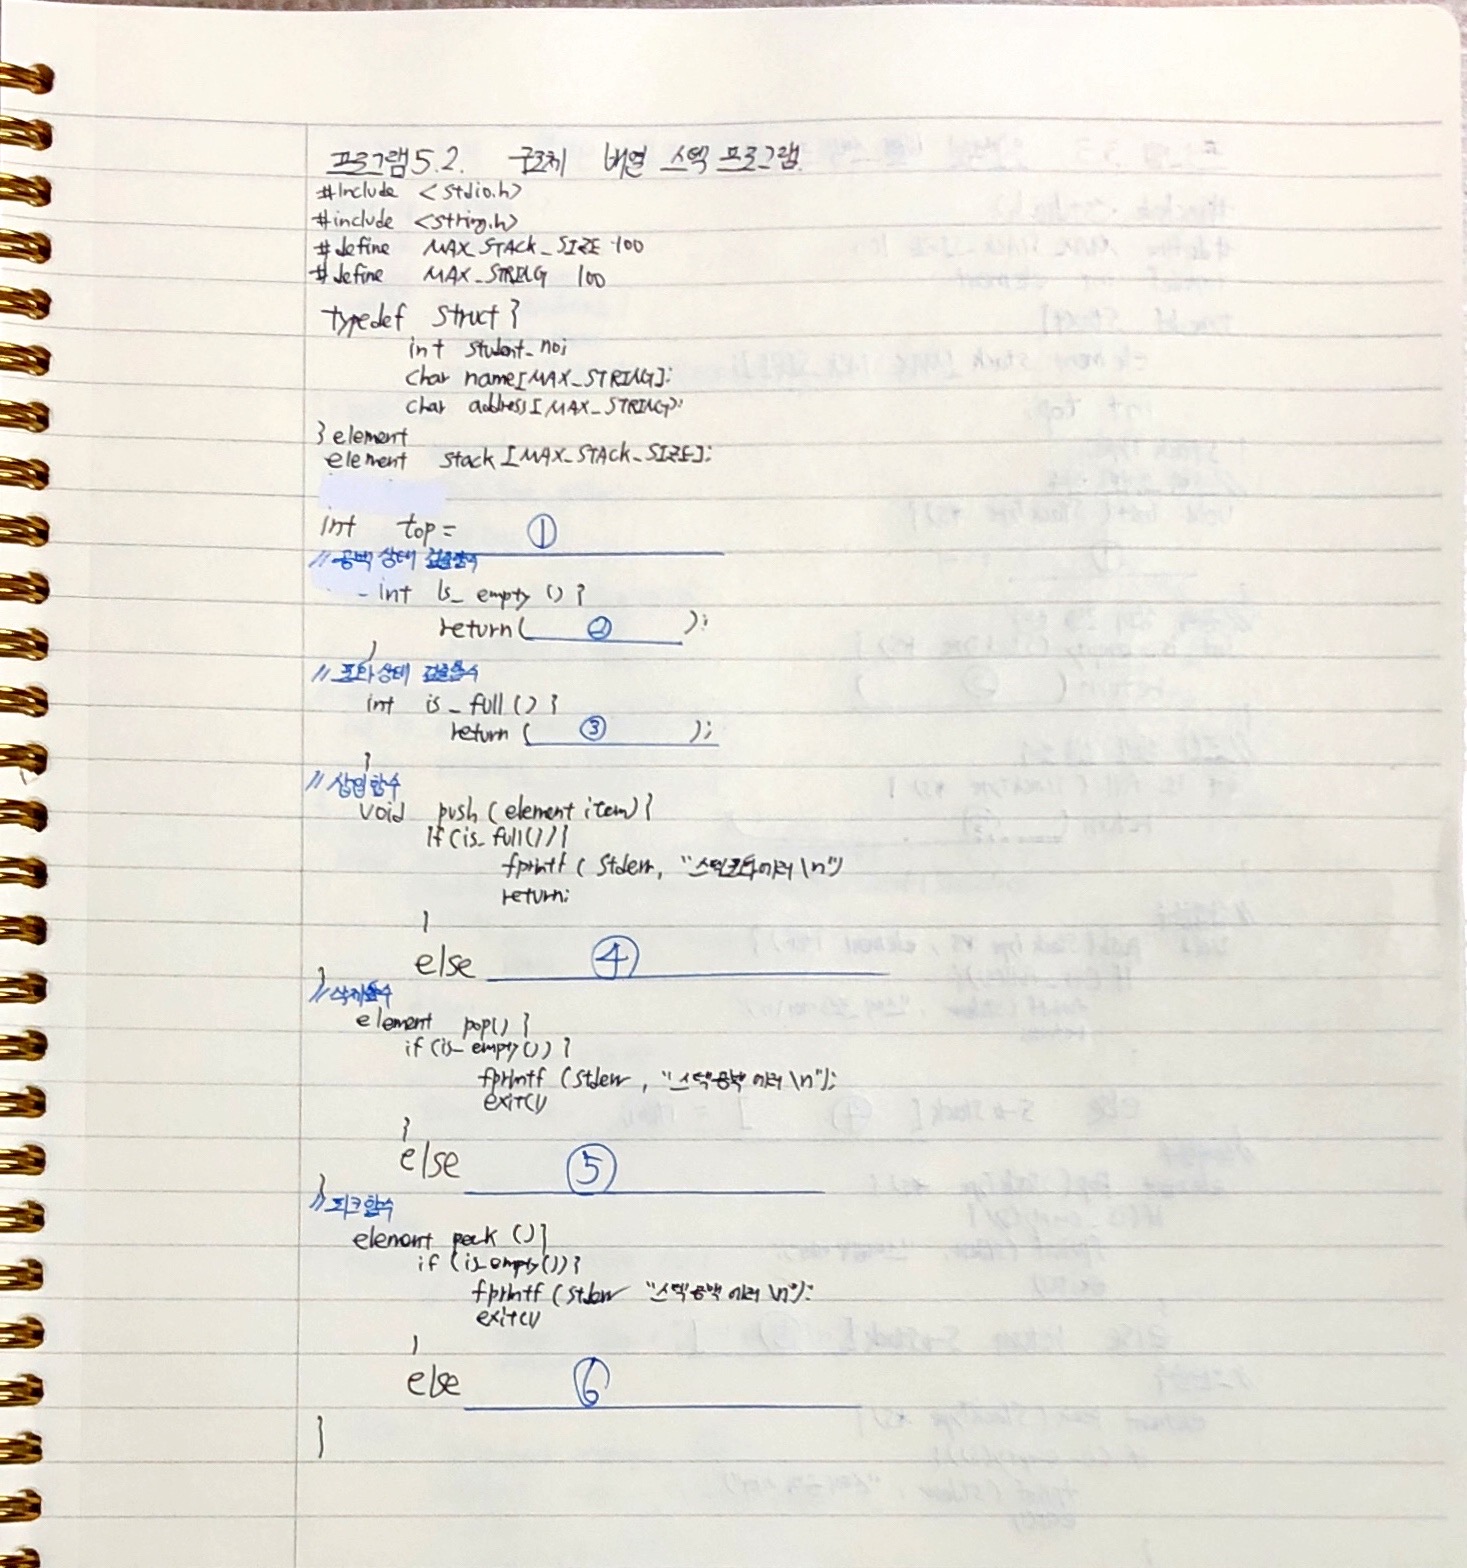 프로그램 5.2. 구조체 배열 스택 프로그램
#include <stdio.h>
#include <string.h>
#define MAX_STACK_SIZE 100
#define MAX_STRING 100
typedef struct {
int student_no;
char name[MAX_STRING];
char address[MAX_STRING];
} element
element stack [MAX_STACK_SIZE];
int top = ①
// 공백 상태 검출함수
int is_empty () {
return( ② );
}
// 포화 상태 검출함수
int is_full () {
return ( ③ );
}
// 삽입함수
void push (element item) {
if (is_full()) {
fprintf ( stderr, "스택포화에러 \n")
return;
}
else ④
}
// 삭제함수
element pop() {
if (is_empty()) {
fprintf (stderr , "스택공백 에러 \n");
exit(1)
}
else ⑤
}
// 피크함수
element peek () {
if (is_empty()) {
fprintf (stderr "스택공백 에러 \n");
exit(1)
}
else ⑥
}